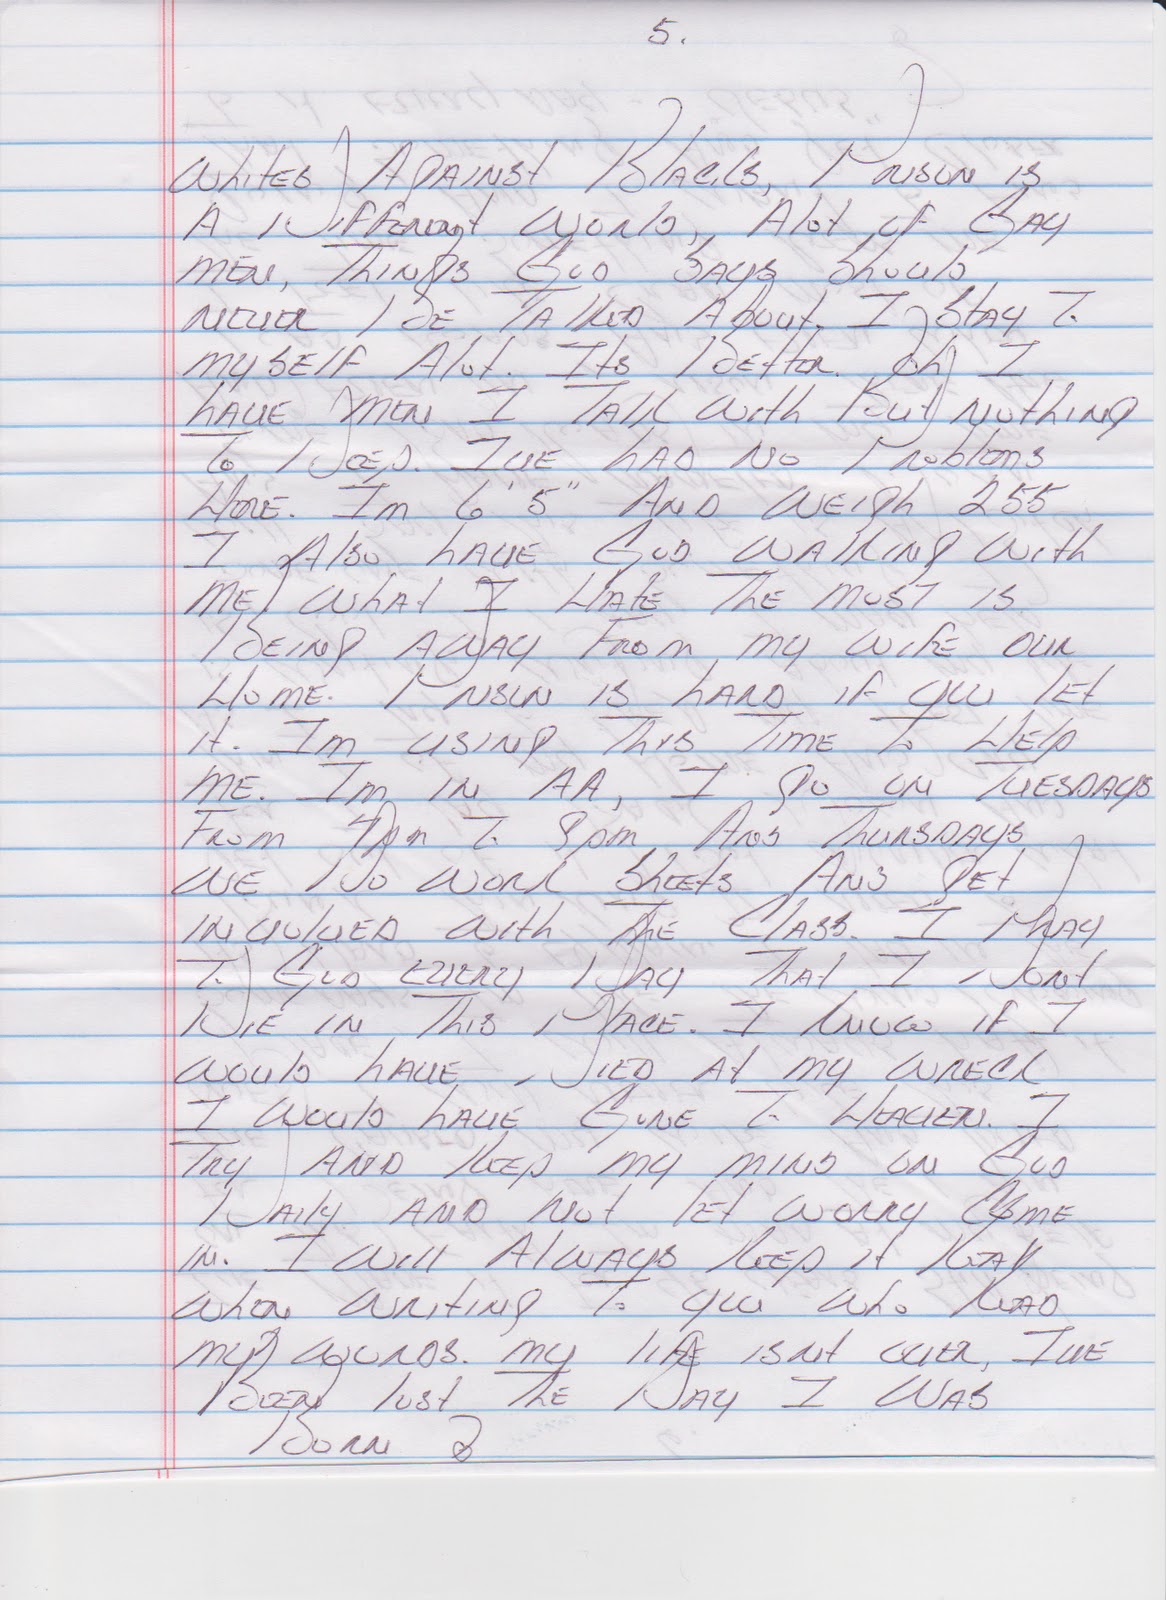 5.
Whites Against Blacks, Prison is
A Different World, Alot of Gay
men, Things God Says Should
never Be Talked About. I Stay To
myself Alot. Its Better. Oh I
have men I Talk with But nothing
To Deep. Ive had no Problems
Here. Im 6'5" And weigh 255
I Also have God walking with
me, what I Hate The most is
Being Away From my wife our
Home. Prison is hard if you let
it. Im using This Time To Help
me. Im in AA, I go on Tuesdays
From 7pm To 8pm And Thursdays
we Do work Sheets And get
involved with The Class. I Pray
To God every Day That I Dont
Die in This Place. I know if I
would have Died at my wreck
I would have Gone To Heaven. I
Try And keep my mind on God
Daily And not let worry Come
in. I will Always keep it Real
when writing To you who Read
my words. my life isnt over, Ive
Been lost The Day I was
Born